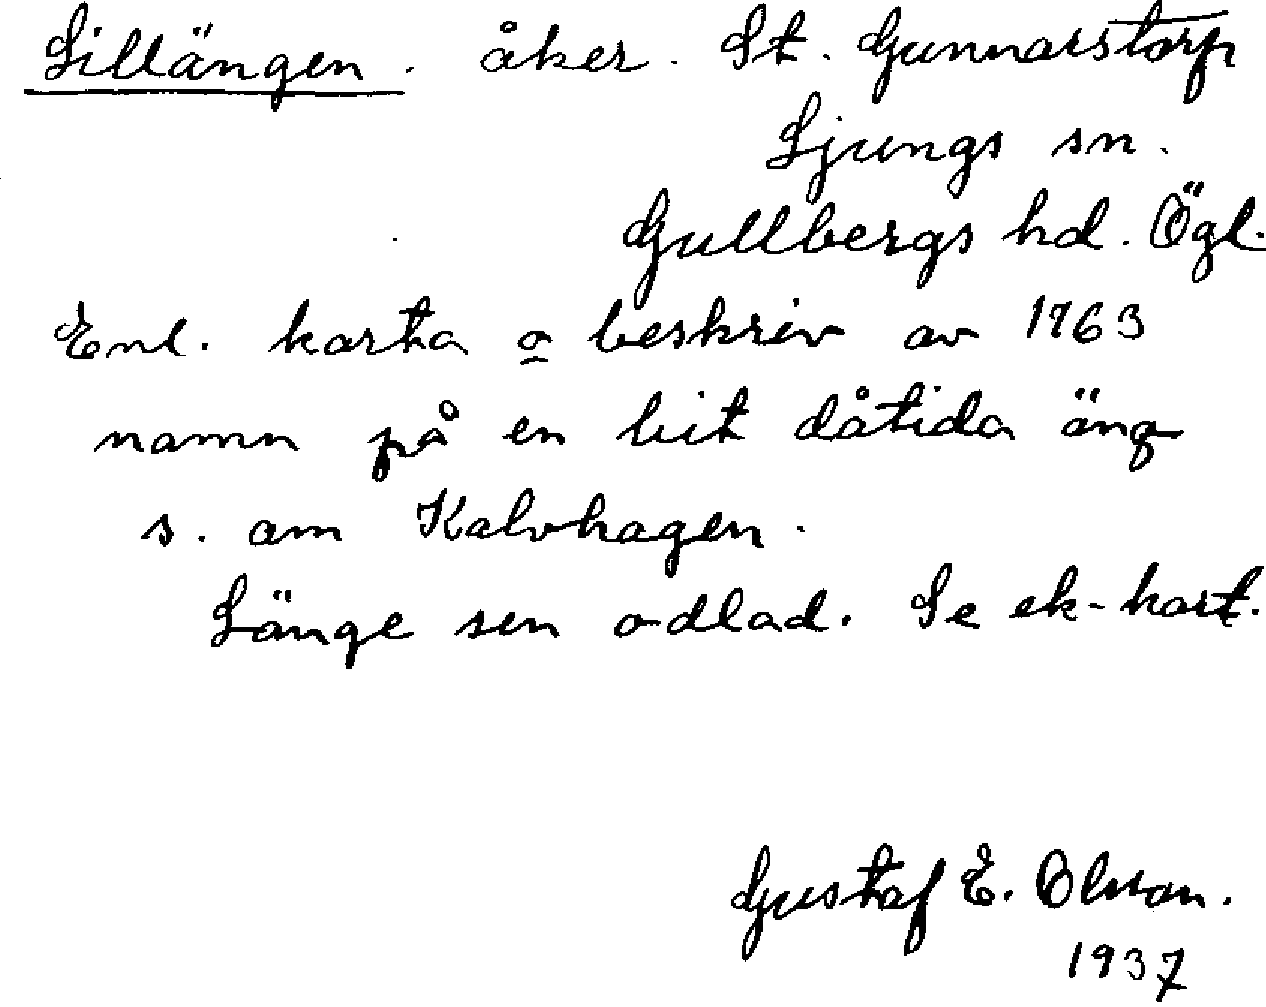 Lillängen. åker. St. Gunnarstorp
Ljungs sn.
Gullbergs hd. Ögl.
Enl. karta o beskriv av 1763
namn på en bit dåtida äng
s. om Kalvhagen.
Länge sen odlad. Se ek-kart.
Gustaf E. Olsson.
1937